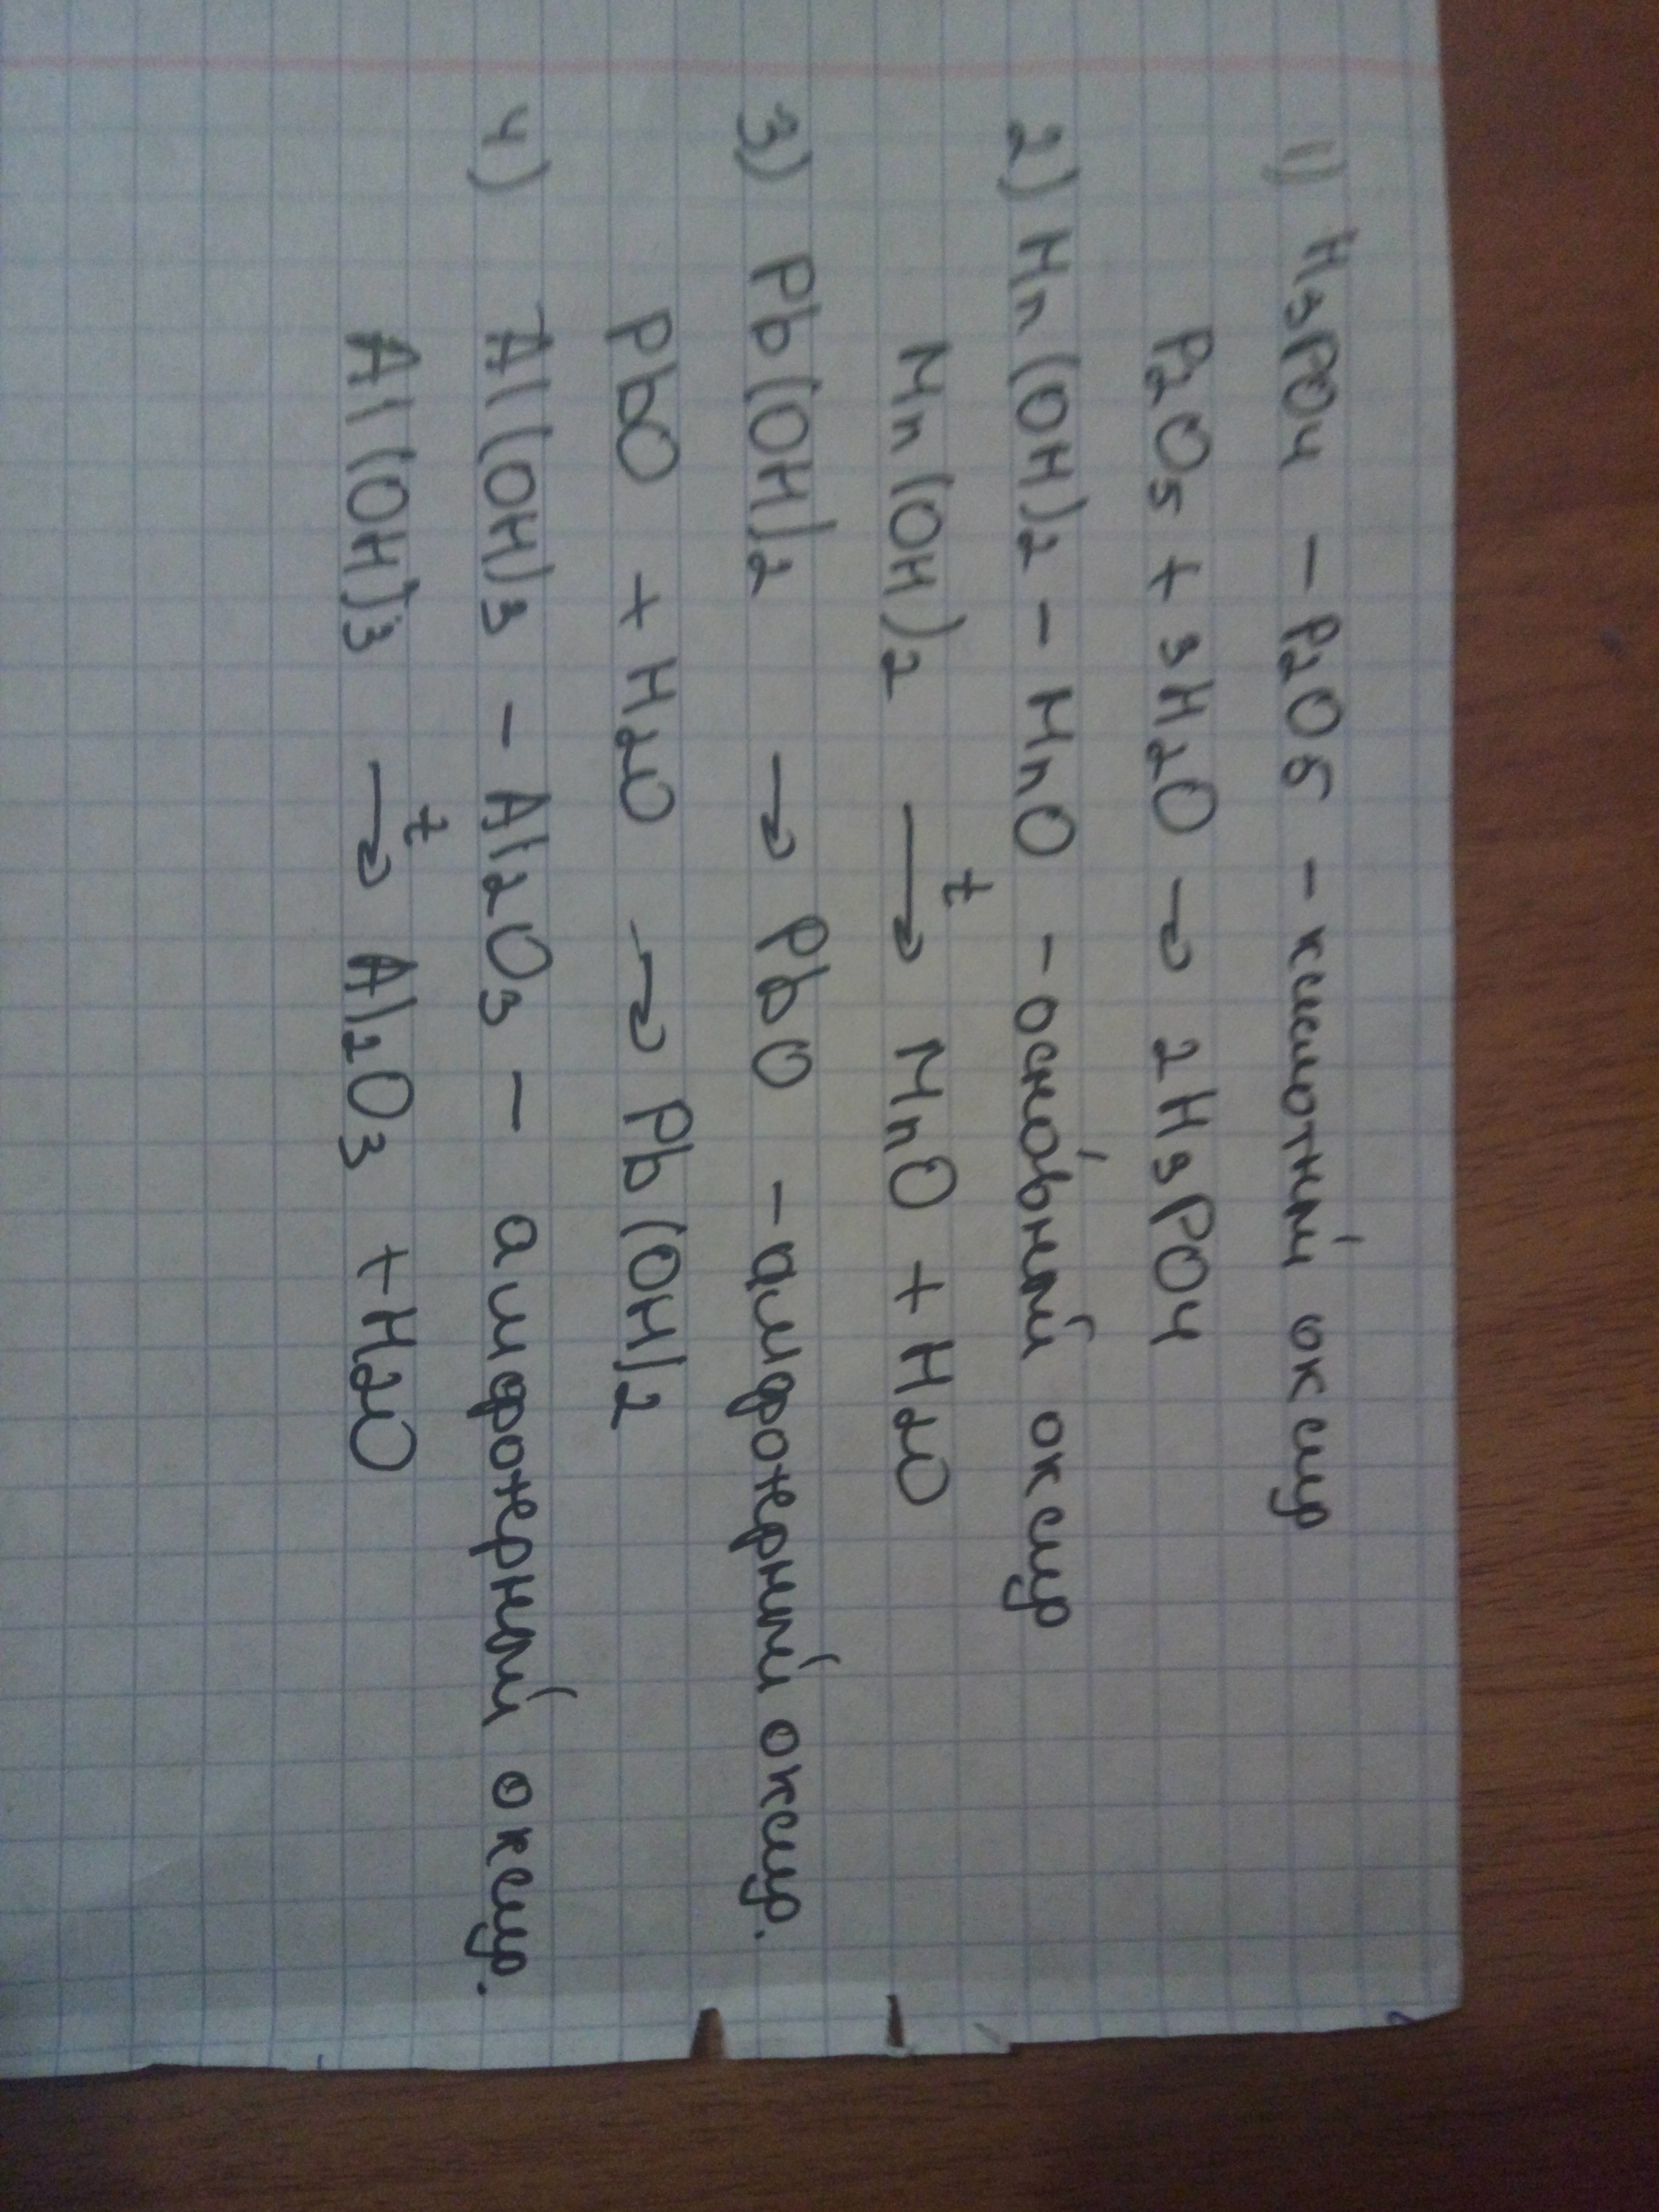 1) H3PO4 – P2O5 – кислотный оксид
P2O5 + 3H2O → 2H3PO4
2) Mn(OH)2 – MnO – основный оксид
Mn(OH)2 →t MnO + H2O
3) Pb(OH)2 → PbO – амфотерный оксид.
PbO + H2O → Pb(OH)2
4) Al(OH)3 – Al2O3 – амфотерный оксид.
Al(OH)3 →t Al2O3 + H2O